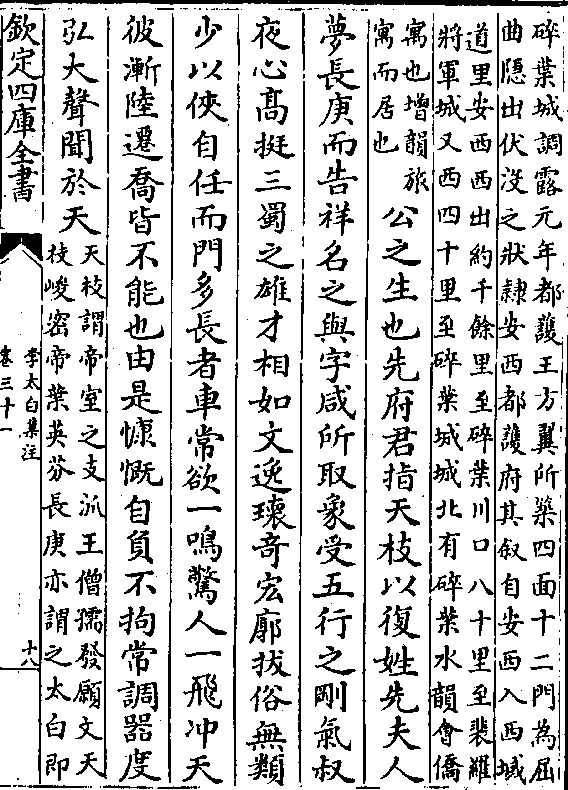 碎葉城調露元年都護王方翼所築四面十二門為屈
曲隱出伏没之狀隸安西都護府其叙自安西入西域
道里安西西出約千餘里至碎葉川口八十里至裴羅
將軍城又西四十里至碎葉城城北有碎葉水韻會僑
寓也增韻旅
寓而居也
公之生也先府君指天枝以復姓先夫人
夢長庚而告祥名之與字咸所取象受五行之剛氣叔
夜心髙挺三蜀之雄才相如文逸瓌竒宏廓拔俗無類
少以俠自任而門多長者車常欲一鳴驚人一飛冲天
彼漸陸遷喬皆不能也由是慷慨自負不拘常調器度
弘大聲聞於天
天枝謂帝室之支泒王僧孺發願文天
枝峻密帝葉英芬長庚亦謂之太白即
欽定四庫全書
李太白集注
卷三十一
十八